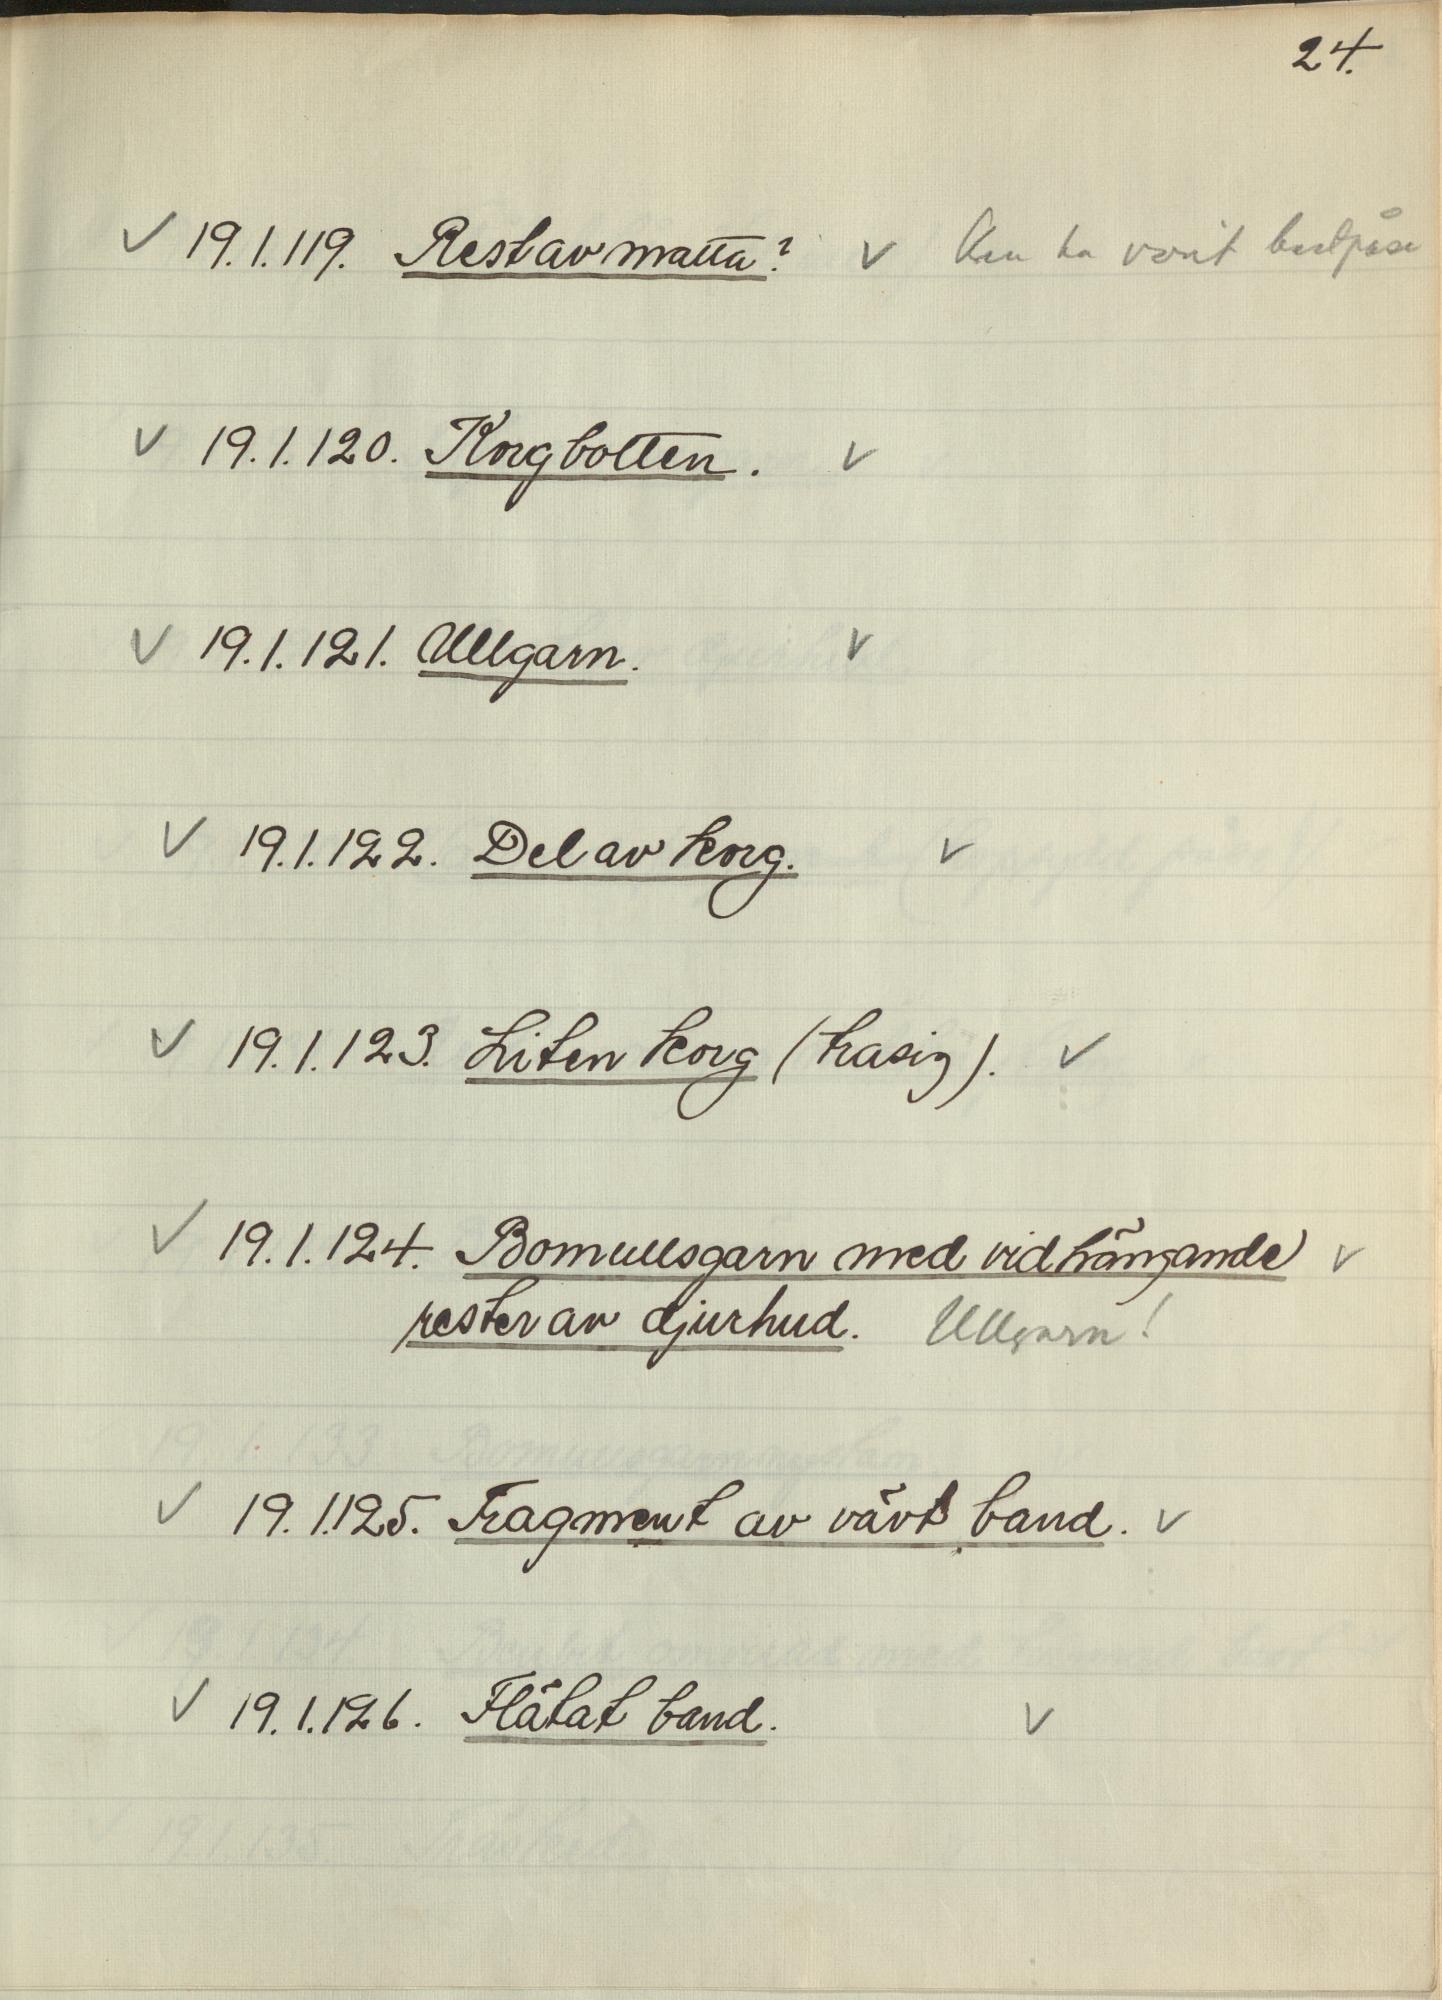 24.
✓ 19.1.119. Rest av matta? ✓ Kan ha varit
✓ 19.1.120. Korgbotten. ✓
✓ 19.1.121. Ullgarn. ✓
✓ 19.1.122. Del av korg. ✓
✓ 19.1.123. Liten korg (trasig). ✓
✓ 19.1.124. Bomullsgarn med vidhängande ✓
rester av djurhud. Ullgarn!
✓ 19.1.125. Fragment av vävt band. ✓
✓ 19.1.126. Flätat band. ✓